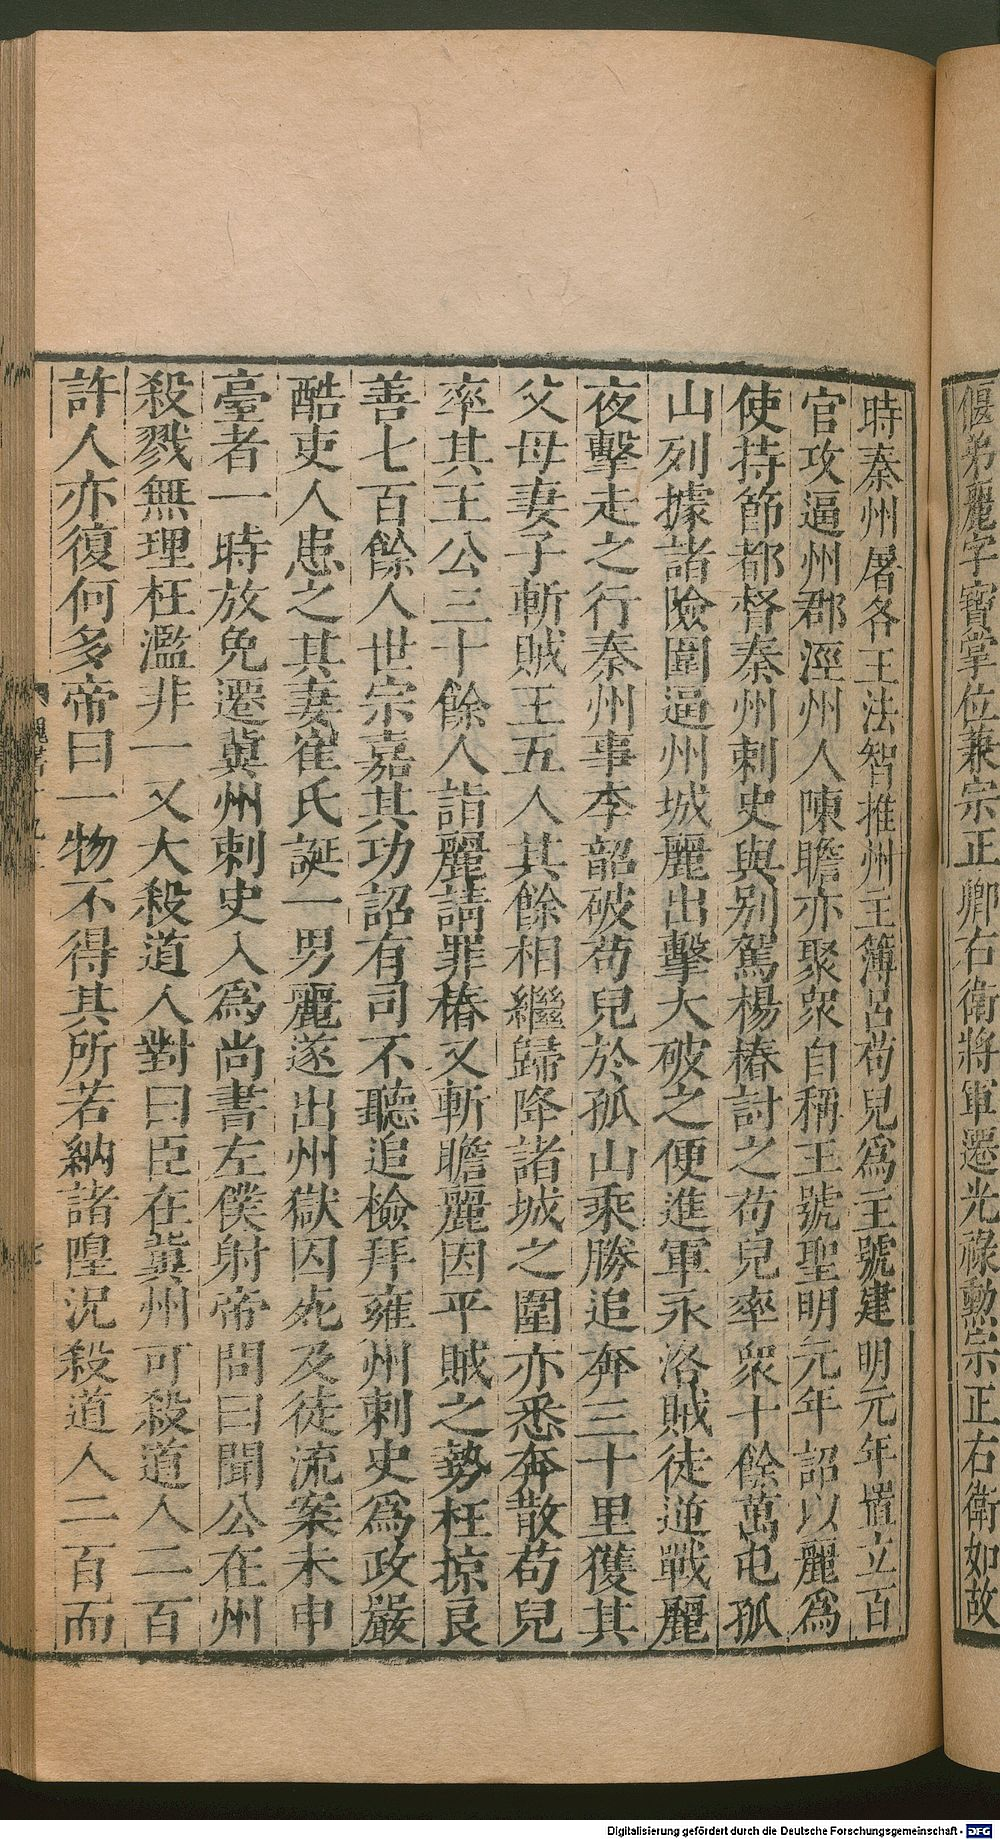 偃弟麗字寶掌位兼宗正卿右衛將軍遷光祿勳宗正右衛如故
時秦州屠各王法智推州主簿呂苟兒為主號建明元年置立百
官攻逼州郡涇州人陳瞻亦聚眾自稱王號聖明元年詔以麗為
使持節都督秦州刺史與別駕楊椿討之苟兒率眾十餘萬屯孤
山列據諸險圍逼州城麗出擊大破之便進軍永洛賊徒逆戰麗
夜擊走之行秦州事李韶破苟兒於孤山乘勝追奔三十里獲其
父母妻子斬賊王五人其餘相繼歸降諸城之圍亦悉奔散苟兒
率其王公三十餘人詣麗請罪椿又斬瞻麗因平賊之勢枉掠良
善七百餘人世宗嘉其功詔有司不聽追檢拜雍州刺史為政嚴
酷吏人患之其妻崔氏誕一男麗遂出州獄囚死及徒流案未申
臺者一時放免遷冀州刺史入為尚書左僕射帝問曰聞公在州
殺戮無理枉濫非一又大殺道人對曰臣在冀州可殺道人二百
許人亦復何多帝曰一物不得其所若納諸隍況殺道人二百而
魏書十九
Digitalisierung gefördert durch die Deutsche Forschungsgemeinschaft - DFG